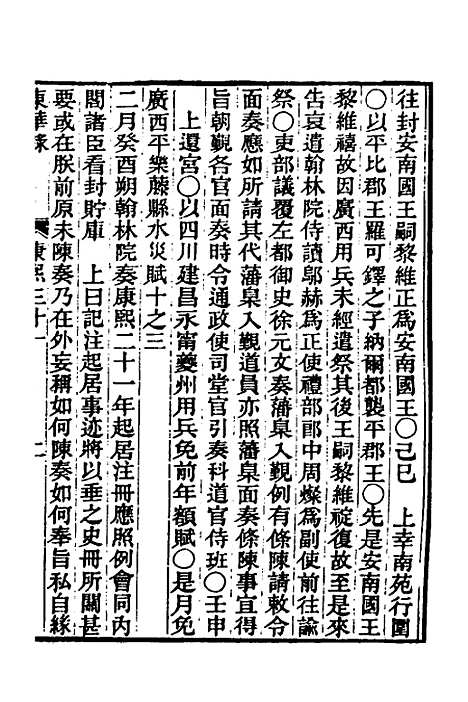 往封安南國王嗣黎維正爲安南國王〇己巳　上幸南苑行圍
〇以平比郡王羅可鐸之子納爾都襲平郡王〇先是安南國王
黎維禧故因廣西用兵未經遣祭其後王嗣黎維䄇復故至是來
告哀遣翰林院侍讀鄔赫爲正使禮部郎中周燦爲副使前往諭
祭〇吏部議覆左都御史徐元文奏藩臬入覲例有條陳請敕令
面奏應如所請其代藩臬入覲道員亦照藩臬面奏條陳事宜得
旨朝覲各官面奏時令通政使司堂官引奏科道官侍班〇壬申
上還宮〇以四川建昌永甯夔州用兵免前年額賦〇是月免
廣西平樂藤縣水災賦十之三
二月癸酉朔翰林院奏康熙二十一年起居注冊應照例會同内
閣諸臣看封貯庫　上曰記注起居事迹將以垂之史冊所關甚
要或在朕前原未陳奏乃在外妄稱如何陳奏如何奉旨私自緣
東華錄　康熙三十一　二